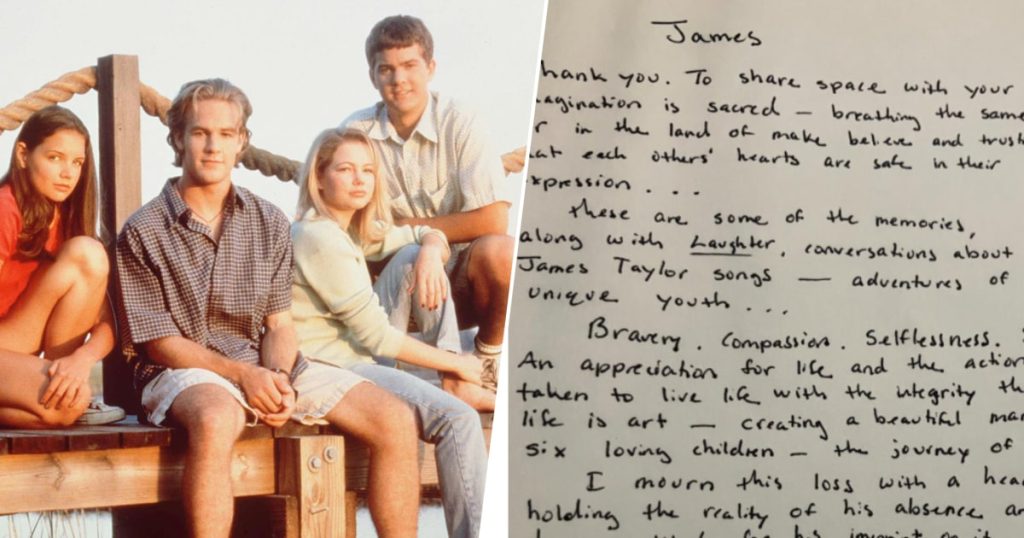 James
hank you. To share space with your
magination is sacred — breathing the same
r in the land of make believe and trust
hat each others' hearts are safe in their
xpression . . .
these are some of the memories,
along with Laughter, conversations about
James Taylor songs — adventures of
unique youth . . .
Bravery. Compassion. Selflessness.
An appreciation for life and the action
taken to live life with the integrity tha
life is art — creating a beautiful mar
six loving children — the journey of
I mourn this loss with a hear
holding the reality of his absence an
for his imprint on it